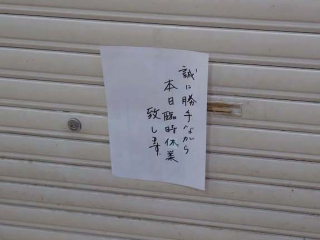 誠に勝手ながら
本日臨時休業
致します